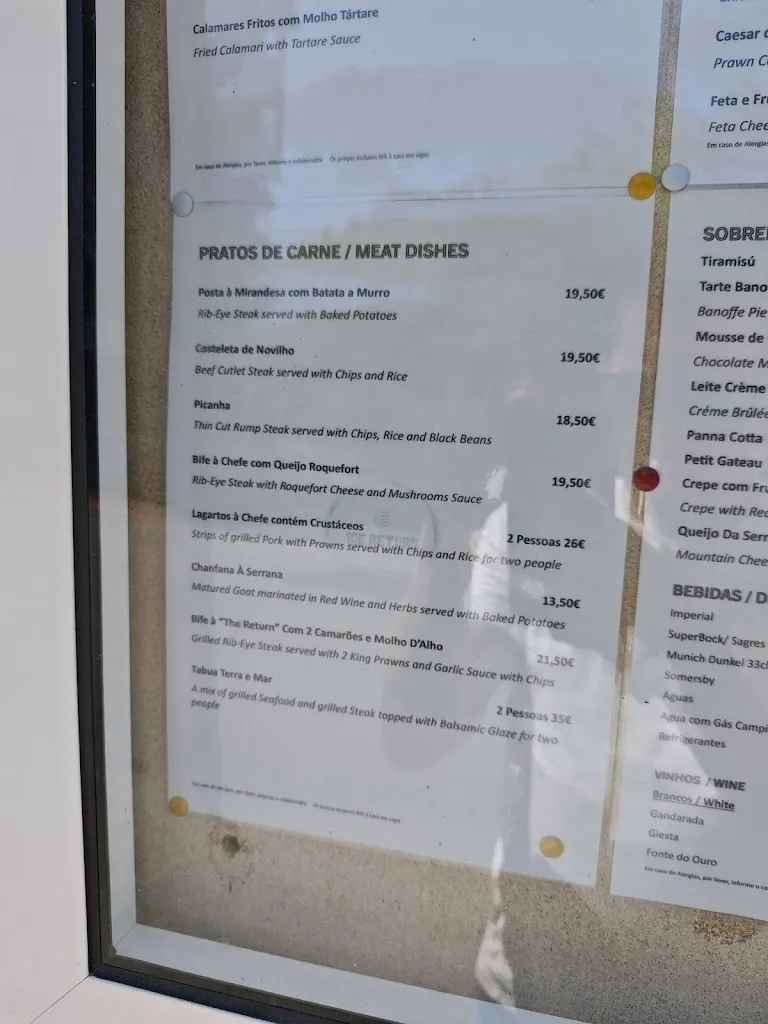 Calamares Fritos com Molho Tártare
Fried Calamari with Tartare Sauce
Em caso de Alergias, por favor, informe o colaborador Os preços incluem IVA à taxa em vigor
PRATOS DE CARNE / MEAT DISHES
Posta à Mirandesa com Batata a Murro 19,50€
Rib-Eye Steak served with Baked Potatoes
Costeleta de Novilho 19,50€
Beef Cutlet Steak served with Chips and Rice
Picanha 18,50€
Thin Cut Rump Steak served with Chips, Rice and Black Beans
Bife à Chefe com Queijo Roquefort 19,50€
Rib-Eye Steak with Roquefort Cheese and Mushrooms Sauce
Lagartos à Chefe contém Crustáceos 2 Pessoas 26€
Strips of grilled Pork with Prawns served with Chips and Rice for two people
Chanfana À Serrana 13,50€
Matured Goat marinated in Red Wine and Herbs served with Baked Potatoes
Bife à "The Return" Com 2 Camarões e Molho D'Alho 21,50€
Grilled Rib-Eye Steak served with 2 King Prawns and Garlic Sauce with Chips
Tabua Terra e Mar 2 Pessoas 35€
A mix of grilled Seafood and grilled Steak topped with Balsamic Glaze for two
people
THE RETURN
Caesar
Prawn
Feta e
Feta
Em caso de Alergias
Tiramisú
Tarte
Banoffe Pie
Mousse de
Chocolate
Leite Crème
Créme Brûlée
Panna Cotta
Petit Gateau
Crepe com
Crepe with
Queijo Da
Mountain
BEBIDAS /
Imperial
SuperBock/ Sagres
Munich Dunkel 33cl
Somersby
Aguas
Agua com Gás
Refrigerantes
VINHOS / WINE
Brancos / White
Gandarada
Giesta
Fonte do Ouro
Em caso de Alergias, por favor, informe o